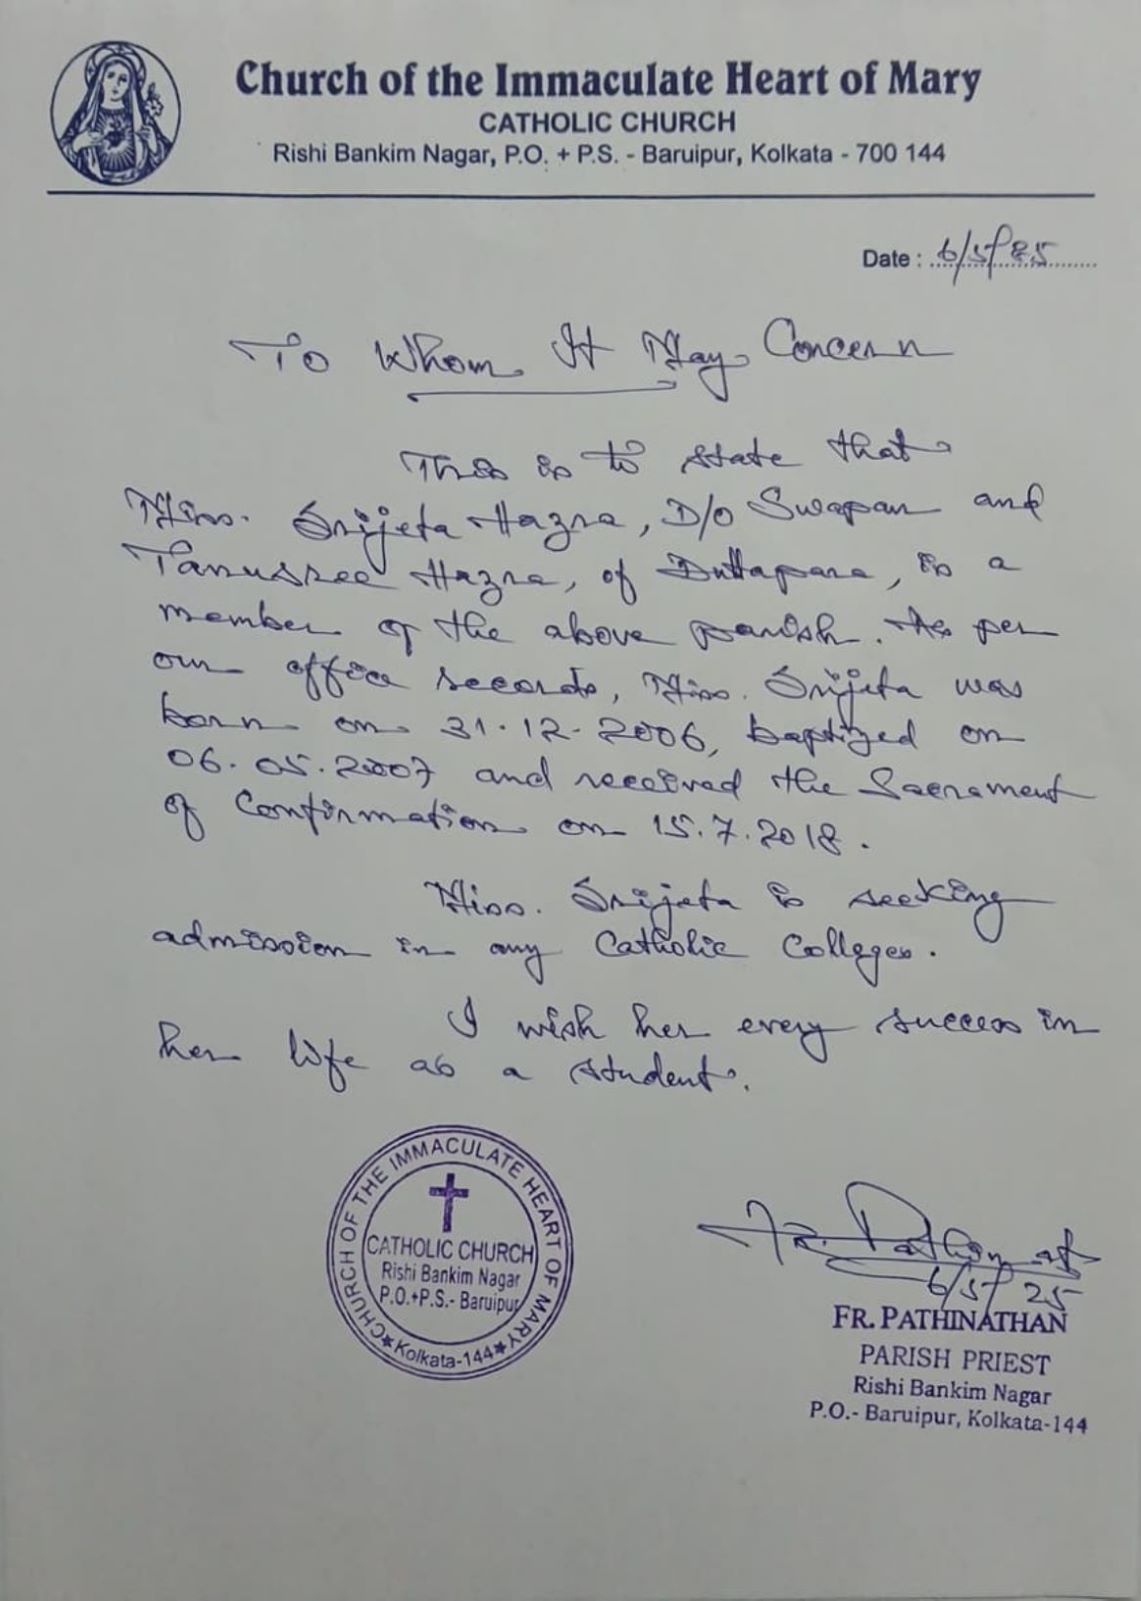 Church of the Immaculate Heart of Mary
CATHOLIC CHURCH
Rishi Bankim Nagar, P.O. + P.S. - Baruipur, Kolkata - 700 144
Date : 6/5/25
To Whom It May Concern
This is to state that
Miss. Srijeta Hazra, D/o Swapan and
Tanusree Hazra, of Duttapara, is a
member of the above parish. As per
our office records, Miss. Srijeta was
born on 31.12.2006, baptized on
06.05.2007 and received the Sacrament
of Confirmation on 15.7.2018.
Miss. Srijeta is seeking
admission in any Catholic Colleges.
I wish her every success in
her life as a student.
CHURCH OF THE IMMACULATE HEART OF MARY
CATHOLIC CHURCH
Rishi Bankim Nagar
P.O.+P.S.- Baruipur
★Kolkata-144★
Fr. Pathinat
6/5/25
FR. PATHINATHAN
PARISH PRIEST
Rishi Bankim Nagar
P.O.- Baruipur, Kolkata-144